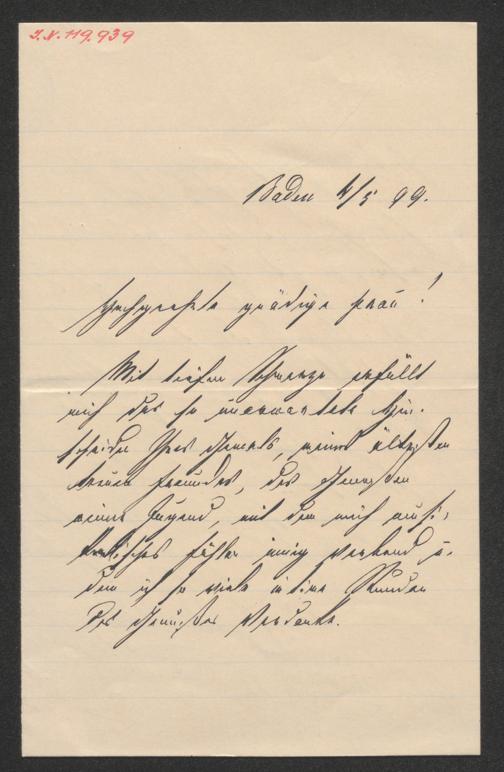 I.N. 119.939
Baden 4/5 99.
Hochgeehrte gnädige Frau!
Mit tiefem Schmerze erfüllt
mich das so unerwartete Hin-
scheiden Ihres Gemals, meines ältesten
treuen Freundes, des Genossen
meiner Jugend, mit dem mich musi-
kalisches Fühlen innig verband u.
dem ich so viele Stunden
des Genußes verdanke.